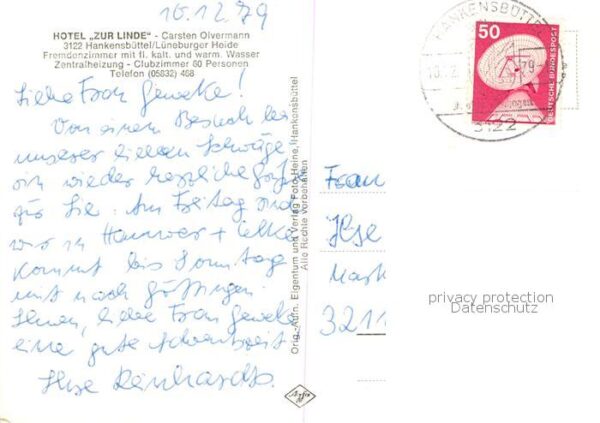 10.12.79
HOTEL „ZUR LINDE" - Carsten Olvermann
3122 Hankensbüttel/Lüneburger Heide
Fremdenzimmer mit fl. kalt. und warm. Wasser
Zentralheizung - Clubzimmer 60 Personen
Telefon (05832) 468
Liebe Frau Geweke!
Von einem Besuch bei
unserer lieben Schwäge-
rin wieder herzliche Grüße
für Sie. Am Freitag sind
wir in Hannover +
kommt bis Sonntag
mit nach Göttingen.
Ihnen, liebe Frau Geweke
eine gute Adventszeit
Ilse Reinhardt.
Orig.-Aufn. Eigentum und Verlag Foto-Heine, Hankensbüttel
Alle Rechte vorbehalten
HANKENSBÜTTEL
3122
50
DEUTSCHE BUNDESPOST
Frau
Ilse
3211
privacy protection
Datenschutz